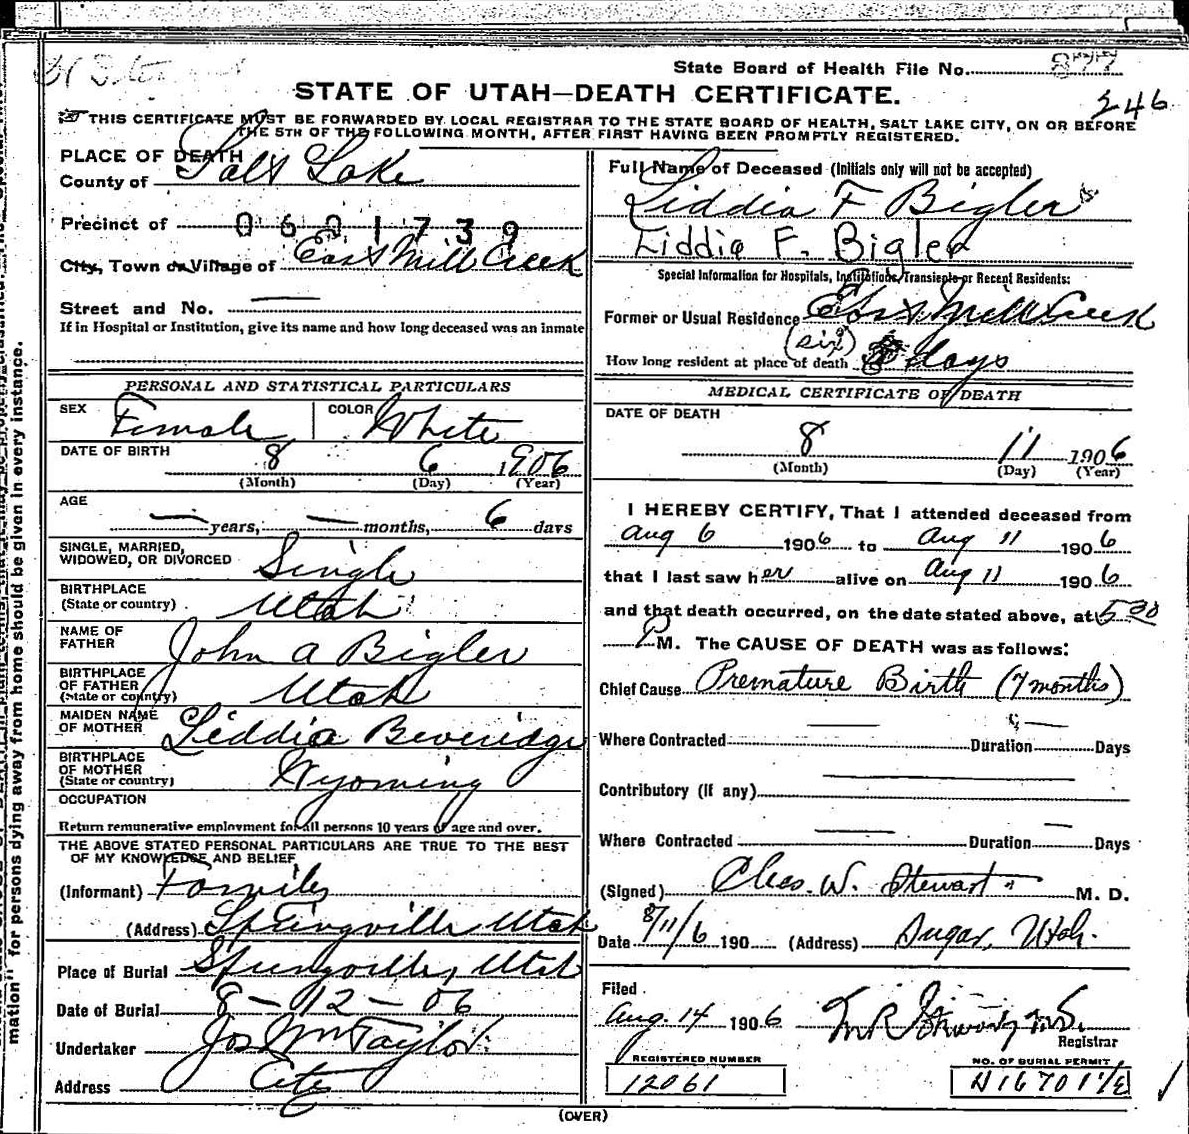 State Board of Health File No. 877
STATE OF UTAH—DEATH CERTIFICATE.
246
THIS CERTIFICATE MUST BE FORWARDED BY LOCAL REGISTRAR TO THE STATE BOARD OF HEALTH, SALT LAKE CITY, ON OR BEFORE
THE 5TH OF THE FOLLOWING MONTH, AFTER FIRST HAVING BEEN PROMPTLY REGISTERED.
PLACE OF DEATH
County of Salt Lake
Precinct of 0601739
City, Town or Village of East Mill Creek
Street and No. —
If in Hospital or Institution, give its name and how long deceased was an inmate
PERSONAL AND STATISTICAL PARTICULARS
SEX Female COLOR White
DATE OF BIRTH 8 6 1906
(Month) (Day) (Year)
AGE
— years, — months, 6 days
SINGLE, MARRIED,
WIDOWED, OR DIVORCED Single
BIRTHPLACE
(State or country) Utah
NAME OF
FATHER John A Bigler
BIRTHPLACE
OF FATHER
(State or country) Utah
MAIDEN NAME
OF MOTHER Liddia Beveridge
BIRTHPLACE
OF MOTHER
(State or country) Wyoming
OCCUPATION
Return remunerative employment for all persons 10 years of age and over.
THE ABOVE STATED PERSONAL PARTICULARS ARE TRUE TO THE BEST
OF MY KNOWLEDGE AND BELIEF
(Informant) Family
(Address) Springville Utah
Place of Burial Springville, Utah
Date of Burial 8-12-06
Undertaker Jos Wm Taylor
Address City
Full Name of Deceased (Initials only will not be accepted)
Liddia F Bigler
Liddia F. Bigler
Special Information for Hospitals, Institutions, Transients or Recent Residents:
Former or Usual Residence East Mill Creek
(six)
How long resident at place of death 6 days
MEDICAL CERTIFICATE OF DEATH
DATE OF DEATH
8 11 1906
(Month) (Day) (Year)
I HEREBY CERTIFY, That I attended deceased from
Aug 6 1906 to Aug 11 1906
that I last saw her alive on Aug 11 1906
and that death occurred, on the date stated above, at 5 30
P M. The CAUSE OF DEATH was as follows:
Chief Cause Premature Birth (7 months)
Where Contracted — Duration — Days
Contributory (if any) —
Where Contracted — Duration — Days
(Signed) Chas. W. Stewart M. D.
Date 8/11/6 190 (Address) Sugar, Utah.
Filed
Aug. 14 1906
Registrar
REGISTERED NUMBER
12061
NO. OF BURIAL PERMIT
(OVER)
mation" for persons dying away from home should be given in every instance.